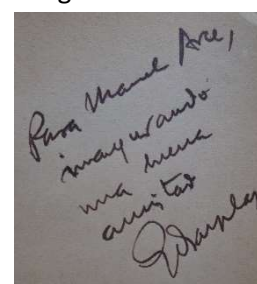 Para Manuel Arce,
inaugurando
una buena
amistad